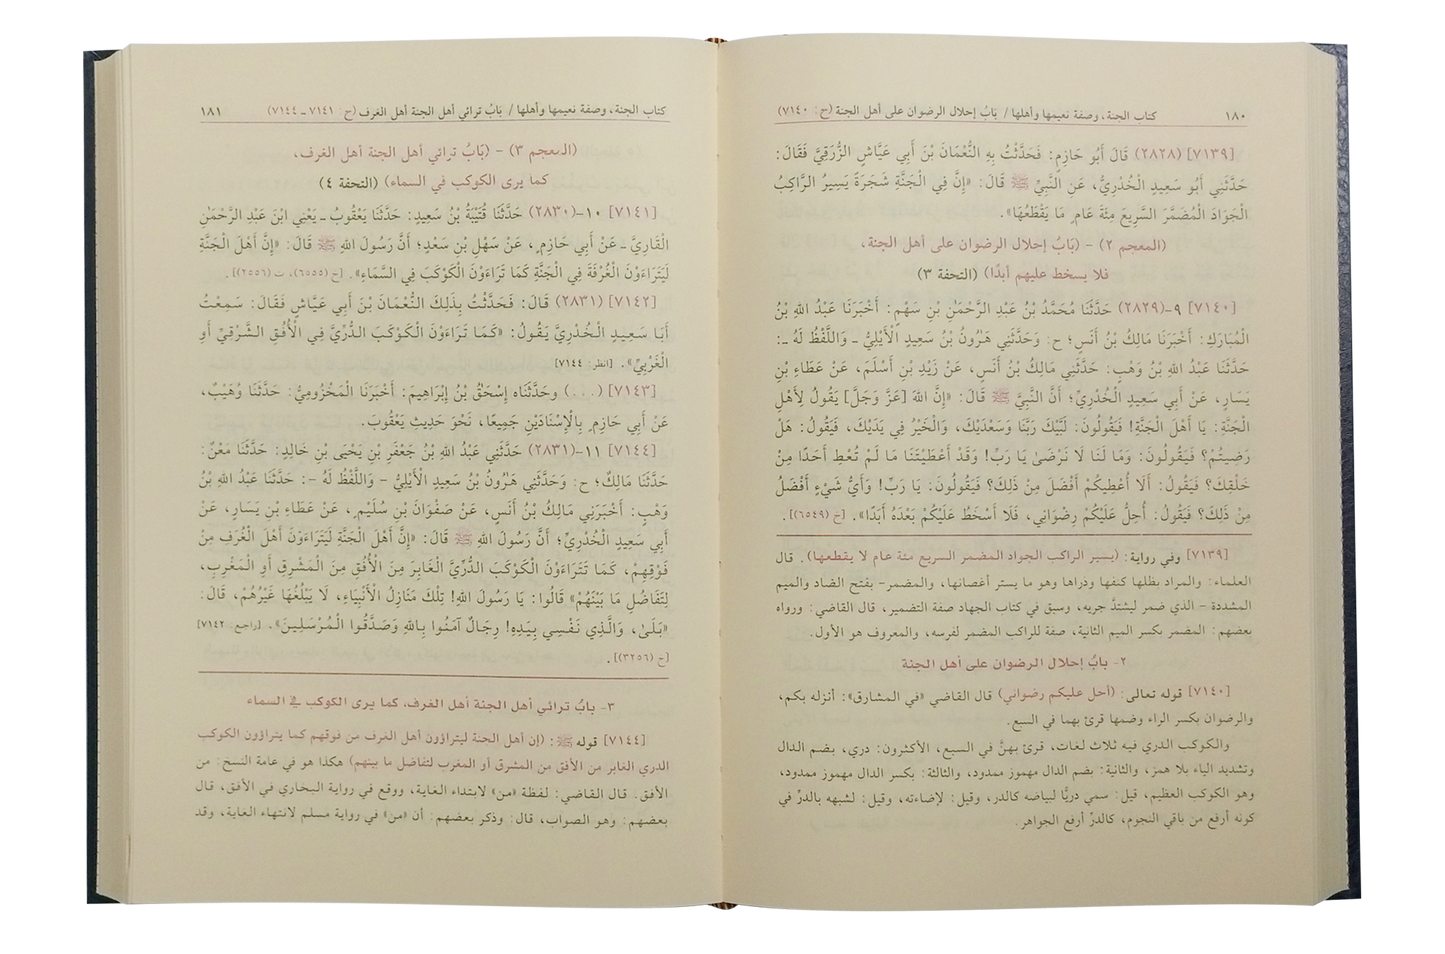 ١٨٠ كتاب الجنة، وصفة نعيمها وأهلها / بَابُ إحلال الرضوان على أهل الجنة (ح: ٧١٤٠)
[٧١٣٩] (٢٨٢٨) قَالَ أَبُو حَازِمٍ: فَحَدَّثْتُ بِهِ النُّعْمَانَ بْنَ أَبِي عَيَّاشٍ الزُّرَقِيَّ فَقَالَ:
حَدَّثَنِي أَبُو سَعِيدٍ الْخُدْرِيُّ، عَنِ النَّبِيِّ ﷺ قَالَ: «إِنَّ فِي الْجَنَّةِ شَجَرَةً يَسِيرُ الرَّاكِبُ
الْجَوَادَ الْمُضَمَّرَ السَّرِيعَ مِئَةَ عَامٍ، مَا يَقْطَعُهَا».
(المعجم ٢) - (بَابُ إحلال الرضوان على أهل الجنة،
فلا يسخط عليهم أبدًا) (التحفة ٣)
[٧١٤٠] ٩-(٢٨٢٩) حَدَّثَنَا مُحَمَّدُ بْنُ عَبْدِ الرَّحْمَنِ بْنِ سَهْمٍ: أَخْبَرَنَا عَبْدُ اللهِ بْنُ
الْمُبَارَكِ: أَخْبَرَنَا مَالِكُ بْنُ أَنَسٍ؛ ح: وَحَدَّثَنِي هَرُونُ بْنُ سَعِيدٍ الْأَيْلِيُّ - وَاللَّفْظُ لَهُ -:
حَدَّثَنَا عَبْدُ اللهِ بْنُ وَهْبٍ: حَدَّثَنِي مَالِكُ بْنُ أَنَسٍ، عَنْ زَيْدِ بْنِ أَسْلَمَ، عَنْ عَطَاءِ بْنِ
يَسَارٍ، عَنْ أَبِي سَعِيدٍ الْخُدْرِيِّ؛ أَنَّ النَّبِيَّ ﷺ قَالَ: «إِنَّ اللهَ [عَزَّ وَجَلَّ] يَقُولُ لِأَهْلِ
الْجَنَّةِ: يَا أَهْلَ الْجَنَّةِ! فَيَقُولُونَ: لَبَّيْكَ رَبَّنَا وَسَعْدَيْكَ، وَالْخَيْرُ فِي يَدَيْكَ، فَيَقُولُ: هَلْ
رَضِيتُمْ؟ فَيَقُولُونَ: وَمَا لَنَا لَا نَرْضَى يَا رَبِّ! وَقَدْ أَعْطَيْتَنَا مَا لَمْ تُعْطِ أَحَدًا مِنْ
خَلْقِكَ؟ فَيَقُولُ: أَلَا أُعْطِيكُمْ أَفْضَلَ مِنْ ذَلِكَ؟ فَيَقُولُونَ: يَا رَبِّ! وَأَيُّ شَيْءٍ أَفْضَلُ
مِنْ ذَلِكَ؟ فَيَقُولُ: أُحِلُّ عَلَيْكُمْ رِضْوَانِي، فَلَا أَسْخَطُ عَلَيْكُمْ بَعْدَهُ أَبَدًا». [خ (٦٥٤٩)].
[٧١٣٩] وفي رواية: (يسير الراكب الجواد المضمر السريع مئة عام لا يقطعها). قال
العلماء: والمراد بظلها كنفها وذراها وهو ما يستر أغصانها، والمضمر- بفتح الضاد والميم
المشددة - الذي ضمر ليشتدَّ جريه، وسبق في كتاب الجهاد صفة التضمير، قال القاضي: ورواه
بعضهم: المضمر بكسر الميم الثانية، صفة للراكب المضمر لفرسه، والمعروف هو الأول.
٢- بابُ إحلال الرضوان على أهل الجنة
[٧١٤٠] قوله تعالى: (أحل عليكم رضواني) قال القاضي «في المشارق»: أنزله بكم،
والرضوان بكسر الراء وضمها قرئ بهما في السبع.
والكوكب الدري فيه ثلاث لغات، قرئ بهنَّ في السبع، الأكثرون: دري، بضم الدال
وتشديد الياء بلا همز، والثانية: بضم الدال مهموز ممدود، والثالثة: بكسر الدال مهموز ممدود،
وهو الكوكب العظيم، قيل: سمي دريًّا لبياضه كالدر، وقيل: لإضاءته، وقيل: لشبهه بالدرِّ في
كونه أرفع من باقي النجوم، كالدرِّ أرفع الجواهر.
كتاب الجنة، وصفة نعيمها وأهلها / بَابُ ترائي أهل الجنة أهل الغرف (ح: ٧١٤١ - ٧١٤٤) ١٨١
(المعجم ٣) - (بَابُ ترائي أهل الجنة أهل الغرف،
كما يرى الكوكب في السماء) (التحفة ٤)
[٧١٤١] ١٠-(٢٨٣٠) حَدَّثَنَا قُتَيْبَةُ بْنُ سَعِيدٍ: حَدَّثَنَا يَعْقُوبُ - يَعْنِي ابْنَ عَبْدِ الرَّحْمَنِ
الْقَارِيَّ - عَنْ أَبِي حَازِمٍ، عَنْ سَهْلِ بْنِ سَعْدٍ؛ أَنَّ رَسُولَ اللهِ ﷺ قَالَ: «إِنَّ أَهْلَ الْجَنَّةِ
لَيَتَرَاءَوْنَ الْغُرْفَةَ فِي الْجَنَّةِ كَمَا تَرَاءَوْنَ الْكَوْكَبَ فِي السَّمَاءِ». [خ (٦٥٥٥)، ت (٢٥٥٦)].
[٧١٤٢] (٢٨٣١) قَالَ: فَحَدَّثْتُ بِذَلِكَ النُّعْمَانَ بْنَ أَبِي عَيَّاشٍ فَقَالَ: سَمِعْتُ
أَبَا سَعِيدٍ الْخُدْرِيَّ يَقُولُ: «كَمَا تَرَاءَوْنَ الْكَوْكَبَ الدُّرِّيَّ فِي الْأُفُقِ الشَّرْقِيِّ أَوِ
الْغَرْبِيِّ». [انظر: ٧١٤٤]
[٧١٤٣] (...) وحَدَّثَنَاه إِسْحَقُ بْنُ إِبْرَاهِيمَ: أَخْبَرَنَا الْمَخْزُومِيُّ: حَدَّثَنَا وُهَيْبٌ،
عَنْ أَبِي حَازِمٍ بِالْإِسْنَادَيْنِ جَمِيعًا، نَحْوَ حَدِيثِ يَعْقُوبَ.
[٧١٤٤] ١١-(٢٨٣١) حَدَّثَنِي عَبْدُ اللهِ بْنُ جَعْفَرِ بْنِ يَحْيَى بْنِ خَالِدٍ: حَدَّثَنَا مَعْنٌ:
حَدَّثَنَا مَالِكٌ؛ ح: وَحَدَّثَنِي هَرُونُ بْنُ سَعِيدٍ الْأَيْلِيُّ - وَاللَّفْظُ لَهُ -: حَدَّثَنَا عَبْدُ اللهِ بْنُ
وَهْبٍ: أَخْبَرَنِي مَالِكُ بْنُ أَنَسٍ، عَنْ صَفْوَانَ بْنِ سُلَيْمٍ، عَنْ عَطَاءِ بْنِ يَسَارٍ، عَنْ
أَبِي سَعِيدٍ الْخُدْرِيِّ؛ أَنَّ رَسُولَ اللهِ ﷺ قَالَ: «إِنَّ أَهْلَ الْجَنَّةِ لَيَتَرَاءَوْنَ أَهْلَ الْغُرَفِ مِنْ
فَوْقِهِمْ، كَمَا تَتَرَاءَوْنَ الْكَوْكَبَ الدُّرِّيَّ الْغَابِرَ مِنَ الْأُفُقِ مِنَ الْمَشْرِقِ أَوِ الْمَغْرِبِ،
لِتَفَاضُلِ مَا بَيْنَهُمْ» قَالُوا: يَا رَسُولَ اللهِ! تِلْكَ مَنَازِلُ الْأَنْبِيَاءِ، لَا يَبْلُغُهَا غَيْرُهُمْ، قَالَ:
«بَلَى، وَالَّذِي نَفْسِي بِيَدِهِ! رِجَالٌ آمَنُوا بِاللهِ وَصَدَّقُوا الْمُرْسَلِينَ». [راجع: ٧١٤٢]
[خ (٣٢٥٦)].
٣- بابُ ترائي أهل الجنة أهل الغرف، كما يرى الكوكب في السماء
[٧١٤٤] قوله ﷺ: (إن أهل الجنة ليتراؤون أهل الغرف من فوقهم كما يتراؤون الكوكب
الدري الغابر من الأفق من المشرق أو المغرب لتفاضل ما بينهم) هكذا هو في عامة النسخ: من
الأفق. قال القاضي: لفظة «من» لابتداء الغاية، ووقع في رواية البخاري في الأفق، قال
بعضهم: وهو الصواب، قال: وذكر بعضهم: أن «من» في رواية مسلم لانتهاء الغاية، وقد